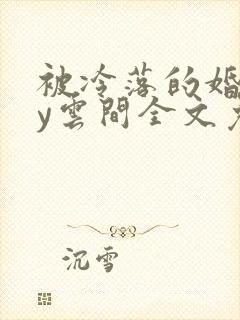 被冷落的婚
y雲間全文
沉雪